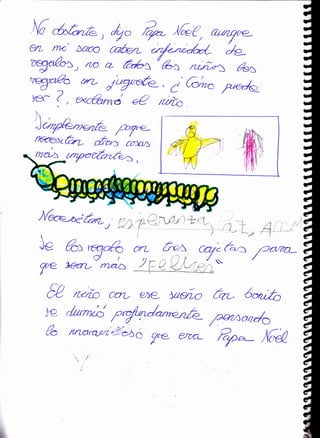 No obstante, dijo Papa Noel, aunque
en mi saco caben infinidad de
regalos, no a todos los niños les
regalo un juguete. ¿Cómo puede
ser?, exclamó el niño.
Simplemente porque
necesitan otras cosas
más importantes.
Necesitan, esperanza, paz, Am
se los regalo en tres cajitas para
que sean más "felices"
El niño con ese sueño tan bonito
se durmió profundamente pensando
lo maravilloso que era Papa Noel